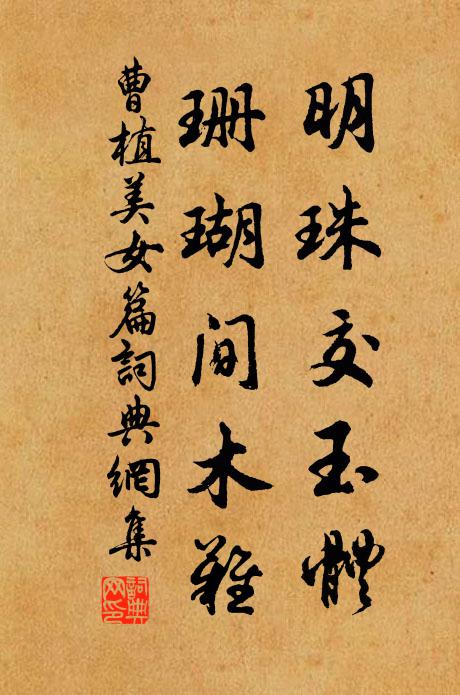 明珠交玉體
珊瑚間木難
曹植美女篇詞典網集
詞典网印